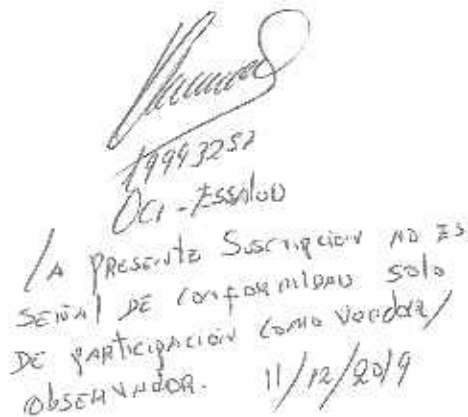 19943252
OCI - ESSALUD
LA PRESENTE SUSCRIPCIÓN NO ES
SEÑAL DE CONFORMIDAD SOLO
DE PARTICIPACIÓN COMO VEEDOR/
OBSERVADOR. 11/12/2019